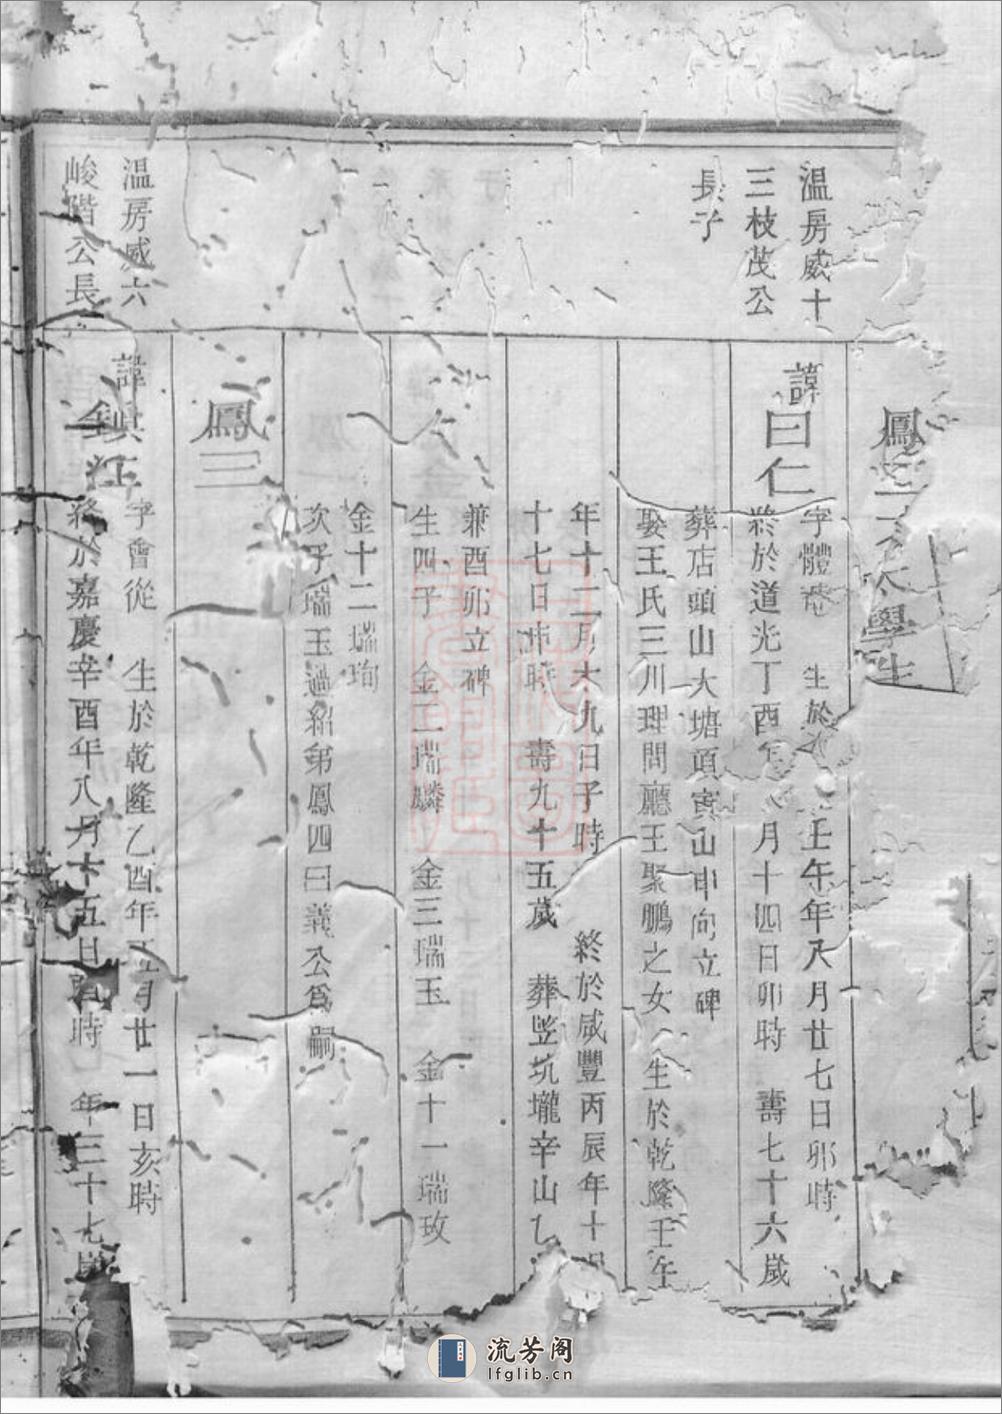 溫房威十
三枝茂公
長子
鳳二 大學生
諱曰仁
字體 生於 壬午年八月廿七日卯時
終於道光丁酉年 月十四日卯時 壽七十六歲
葬店頭山大塘項寅山申向立碑
娶王氏三川理問廳王聚鵬之女 生於乾隆壬午
年十二月 九日子時 終於咸豐丙辰年十
十七日 時 壽九十五歲 葬竖坑壠辛山乙
兼酉卯立碑
生四子 金二瑞麟 金三瑞玉 金十一瑞玫
金十二瑞珣
次子瑞玉過紹弟鳳四曰義公為嗣
鳳三
溫房威六
峻階公長
諱
金
字會從 生於乾隆乙酉年 月廿一日亥時
終於嘉慶辛酉年八月十五日 時 年三十七歲
流芳阁
lfglib.cn